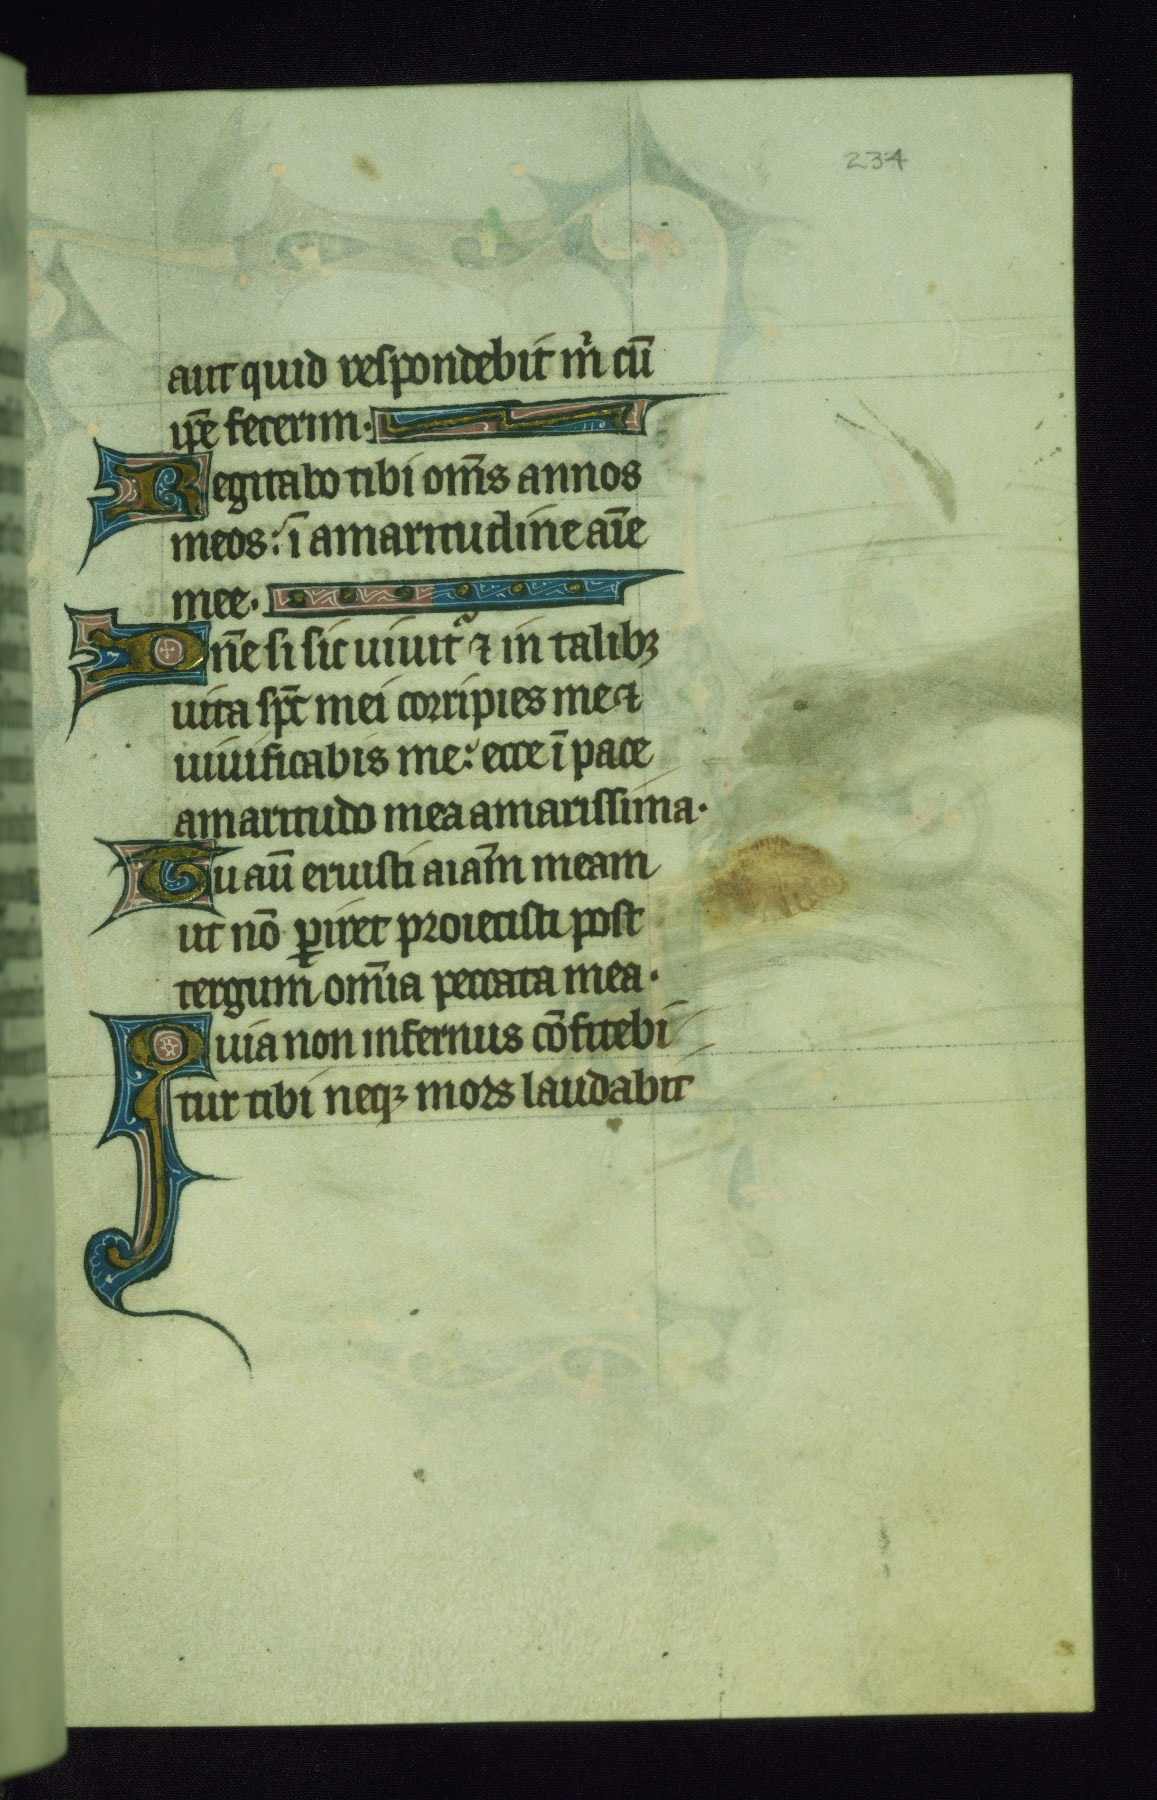 234
aut quid respondebit m̄ cū
ip̄e fecerim·
Regitabo tibi om̄s annos
meos: ī amaritudine aīe
mee·
Dn̄e si sic uiuitᷣ ⁊ in talibꝫ
uita sp̄c mei corripies me ⁊
uiuificabis me: ecce ī pace
amaritudo mea amarissima·
Tu aū eruisti aiam̄ meam
ut nō ꝑiret proiecisti post
tergum om̄ia peccata mea·
Quia non infernus cōfitebi
tur tibi neqꝫ mors laudabit